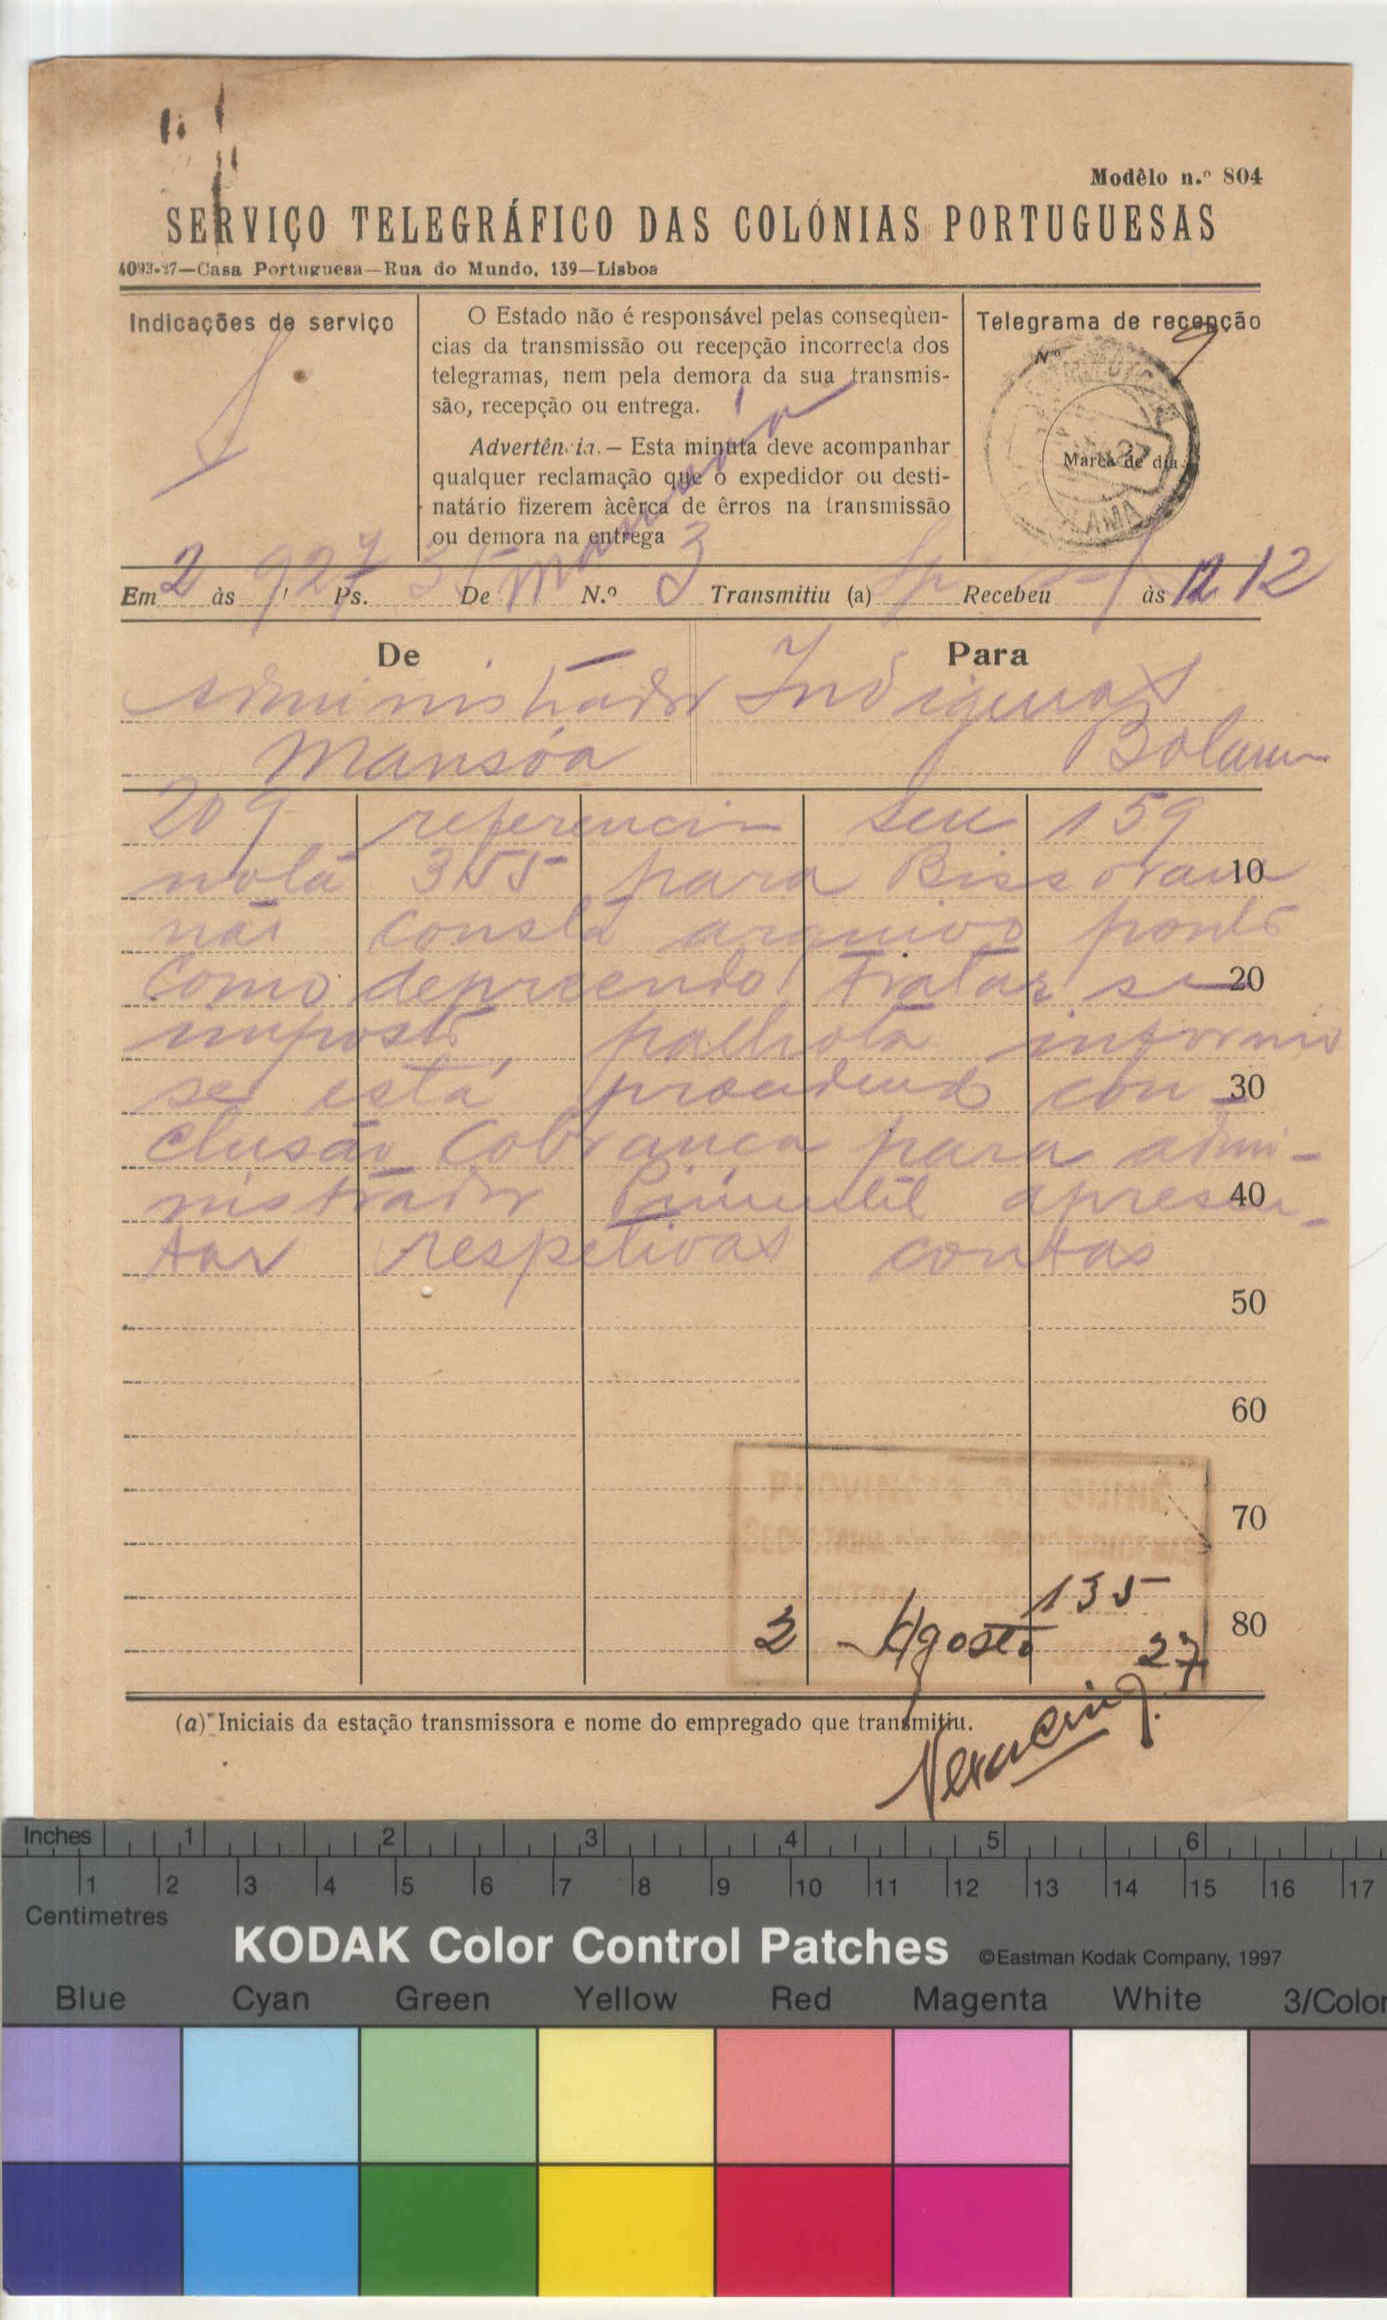 Modêlo n.º 804
SERVIÇO TELEGRÁFICO DAS COLÓNIAS PORTUGUESAS
4093-27—Casa Portuguesa—Rua do Mundo, 139—Lisboa
Indicações de serviço
O Estado não é responsável pelas conseqùen-
cias da transmissão ou recepção incorrecta dos
telegramas, nem pela demora da sua transmis-
são, recepção ou entrega.
Advertência.— Esta minuta deve acompanhar
qualquer reclamação que o expedidor ou desti-
natário fizerem àcêrca de êrros na transmissão
ou demora na entrega
Telegrama de recepção
Nº
Marca de dia
Em 2 às Ps. De N.º 3 Transmitiu (a) Recebeu às 12 12
De
Para
Administrador
Indigenas
Mansôa
Bolama
209 referencia seu 159
nota 355 para Bissoram 10
não consta arquivo ponto
como depreendo tratar se 20
imposto palhota informo
se está procedendo con 30
clusão cobrança para admi-
nistrador Pimentel apresen- 40
tar respetivas contas
50
60
70
135
2 - Agosto 27
80
(a) Iniciais da estação transmissora e nome do empregado que transmitiu.
Inches 1 2 3 4 5 6
1 2 3 4 5 6 7 8 9 10 11 12 13 14 15 16 17
Centimetres
KODAK Color Control Patches ©Eastman Kodak Company, 1997
Blue Cyan Green Yellow Red Magenta White 3/Color